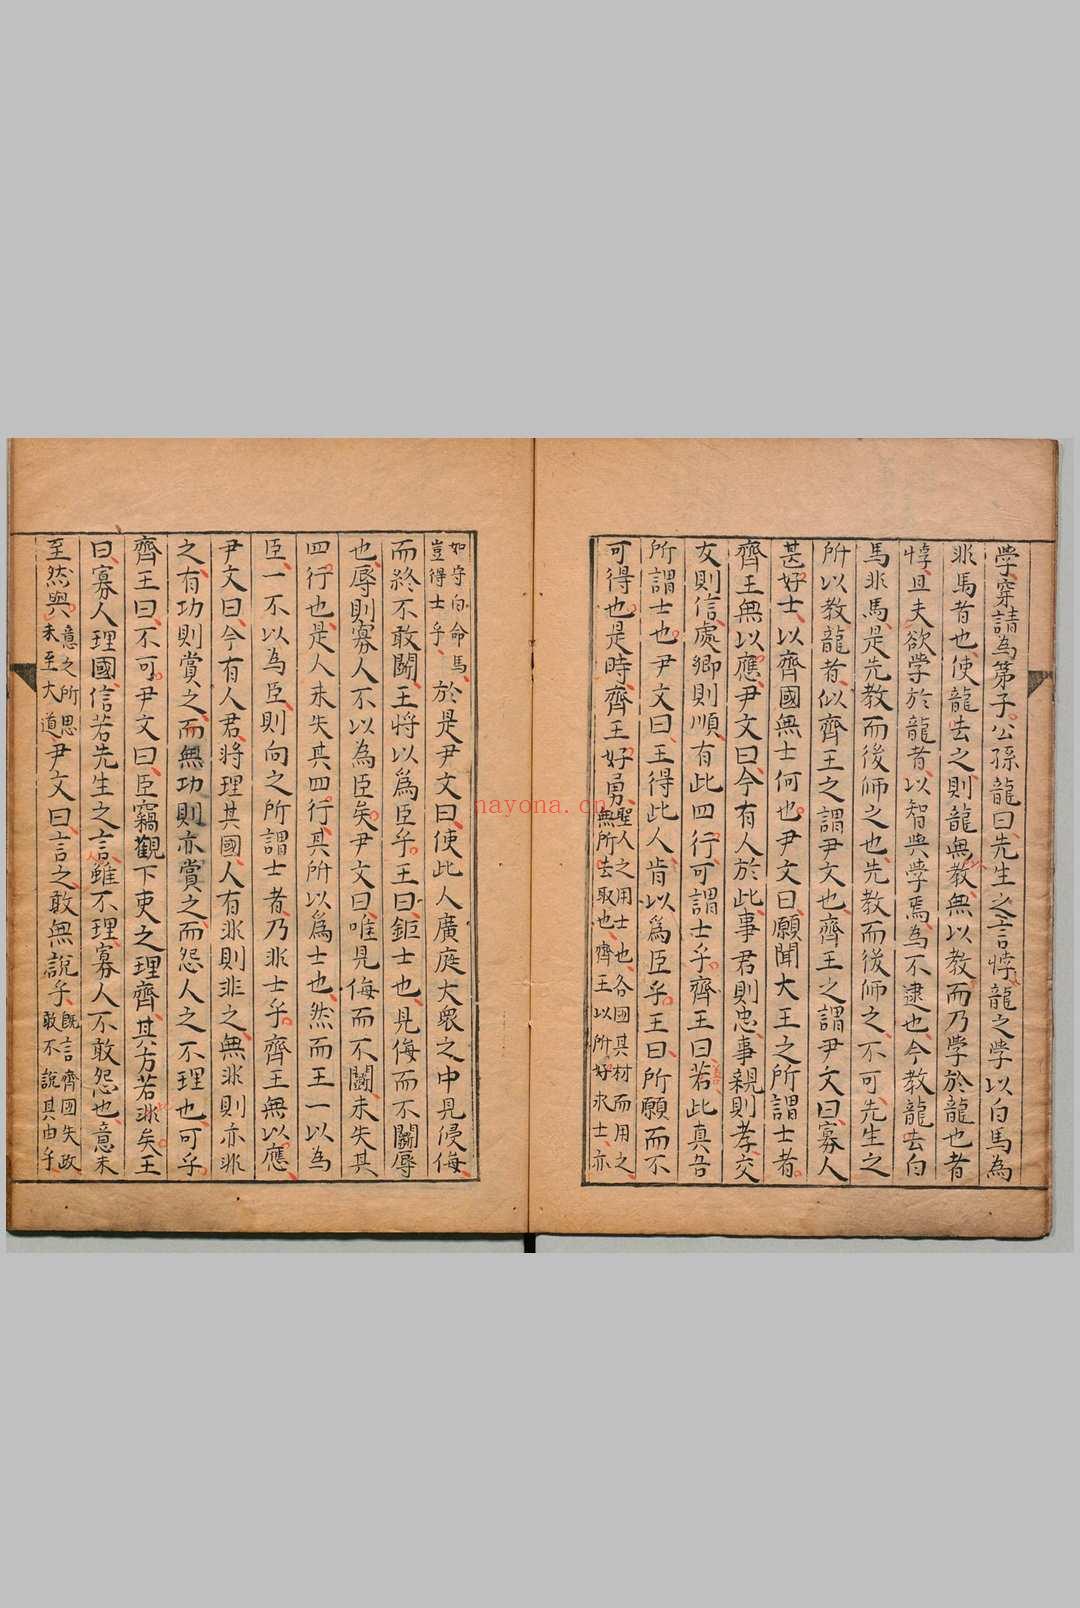 學穿請為第子公孫龍曰先生之言悖龍之學以白馬為
非馬者也使龍去之則龍無教無以教而乃學於龍也者
悖且夫欲學於龍者以智與學焉為不逮也今教龍去白
馬非馬是先教而後師之也先教而後師之不可先生之
所以教龍者似齊王之謂尹文也齊王之謂尹文曰寡人
甚好士以齊國無士何也尹文曰願聞大王之所謂士者
齊王無以應尹文曰今有人於此事君則忠事親則孝交
友則信處鄉則順有此四行可謂士乎齊王曰若此真吾
所謂士也尹文曰王得此人肯以為臣乎王曰所願而不
可得也是時齊王好勇聖人之用士也各因其材而用之
無所去取也齊王以所好求士亦
如守白命馬
豈得士乎於是尹文曰使此人廣庭大衆之中見侵侮
而終不敢鬭王將以為臣乎王曰鉅士也見侮而不鬭辱
也辱則寡人不以為臣矣尹文曰唯見侮而不鬭未失其
四行也是人未失其四行其所以為士也然而王一以為
臣一不以為臣則向之所謂士者乃非士乎齊王無以應
尹文曰今有人君將理其國人有非則非之無非則亦非
之有功則賞之而無功則亦賞之而怨人之不理也可乎
齊王曰不可尹文曰臣竊觀下吏之理齊其方若此矣王
曰寡人理國信若先生之言人雖不理寡人不敢怨也意未
至然與意之所思
未至大道尹文曰言之敢無說乎既言齊國失政
敢不說其由乎
nayona.cn